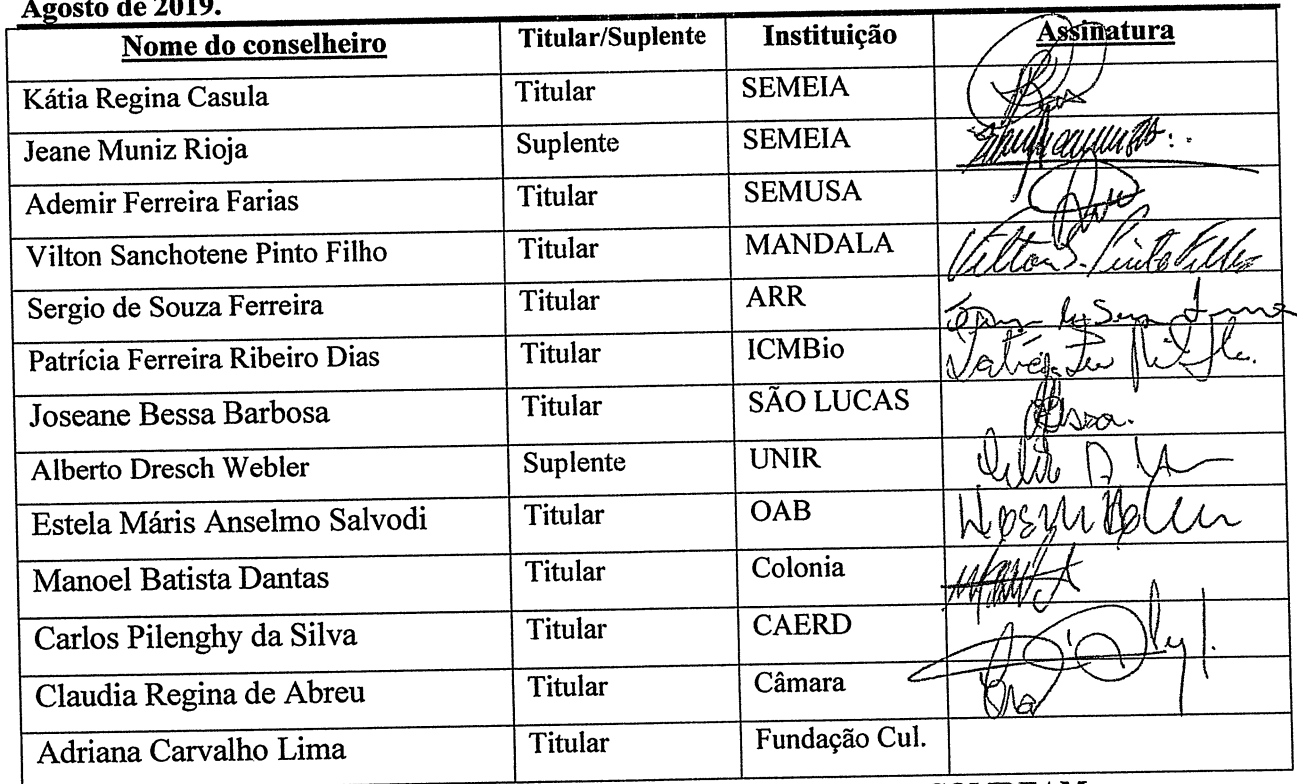 Agosto de 2019.
Nome do conselheiro Titular/Suplente Instituição Assinatura
Kátia Regina Casula Titular SEMEIA
Jeane Muniz Rioja Suplente SEMEIA
Ademir Ferreira Farias Titular SEMUSA
Vilton Sanchotene Pinto Filho Titular MANDALA Vilton S. Pinto Filho
Sergio de Souza Ferreira Titular ARR
Patrícia Ferreira Ribeiro Dias Titular ICMBio
Joseane Bessa Barbosa Titular SÃO LUCAS
Alberto Dresch Webler Suplente UNIR
Estela Máris Anselmo Salvodi Titular OAB
Manoel Batista Dantas Titular Colonia
Carlos Pilenghy da Silva Titular CAERD
Claudia Regina de Abreu Titular Câmara
Adriana Carvalho Lima Titular Fundação Cul.